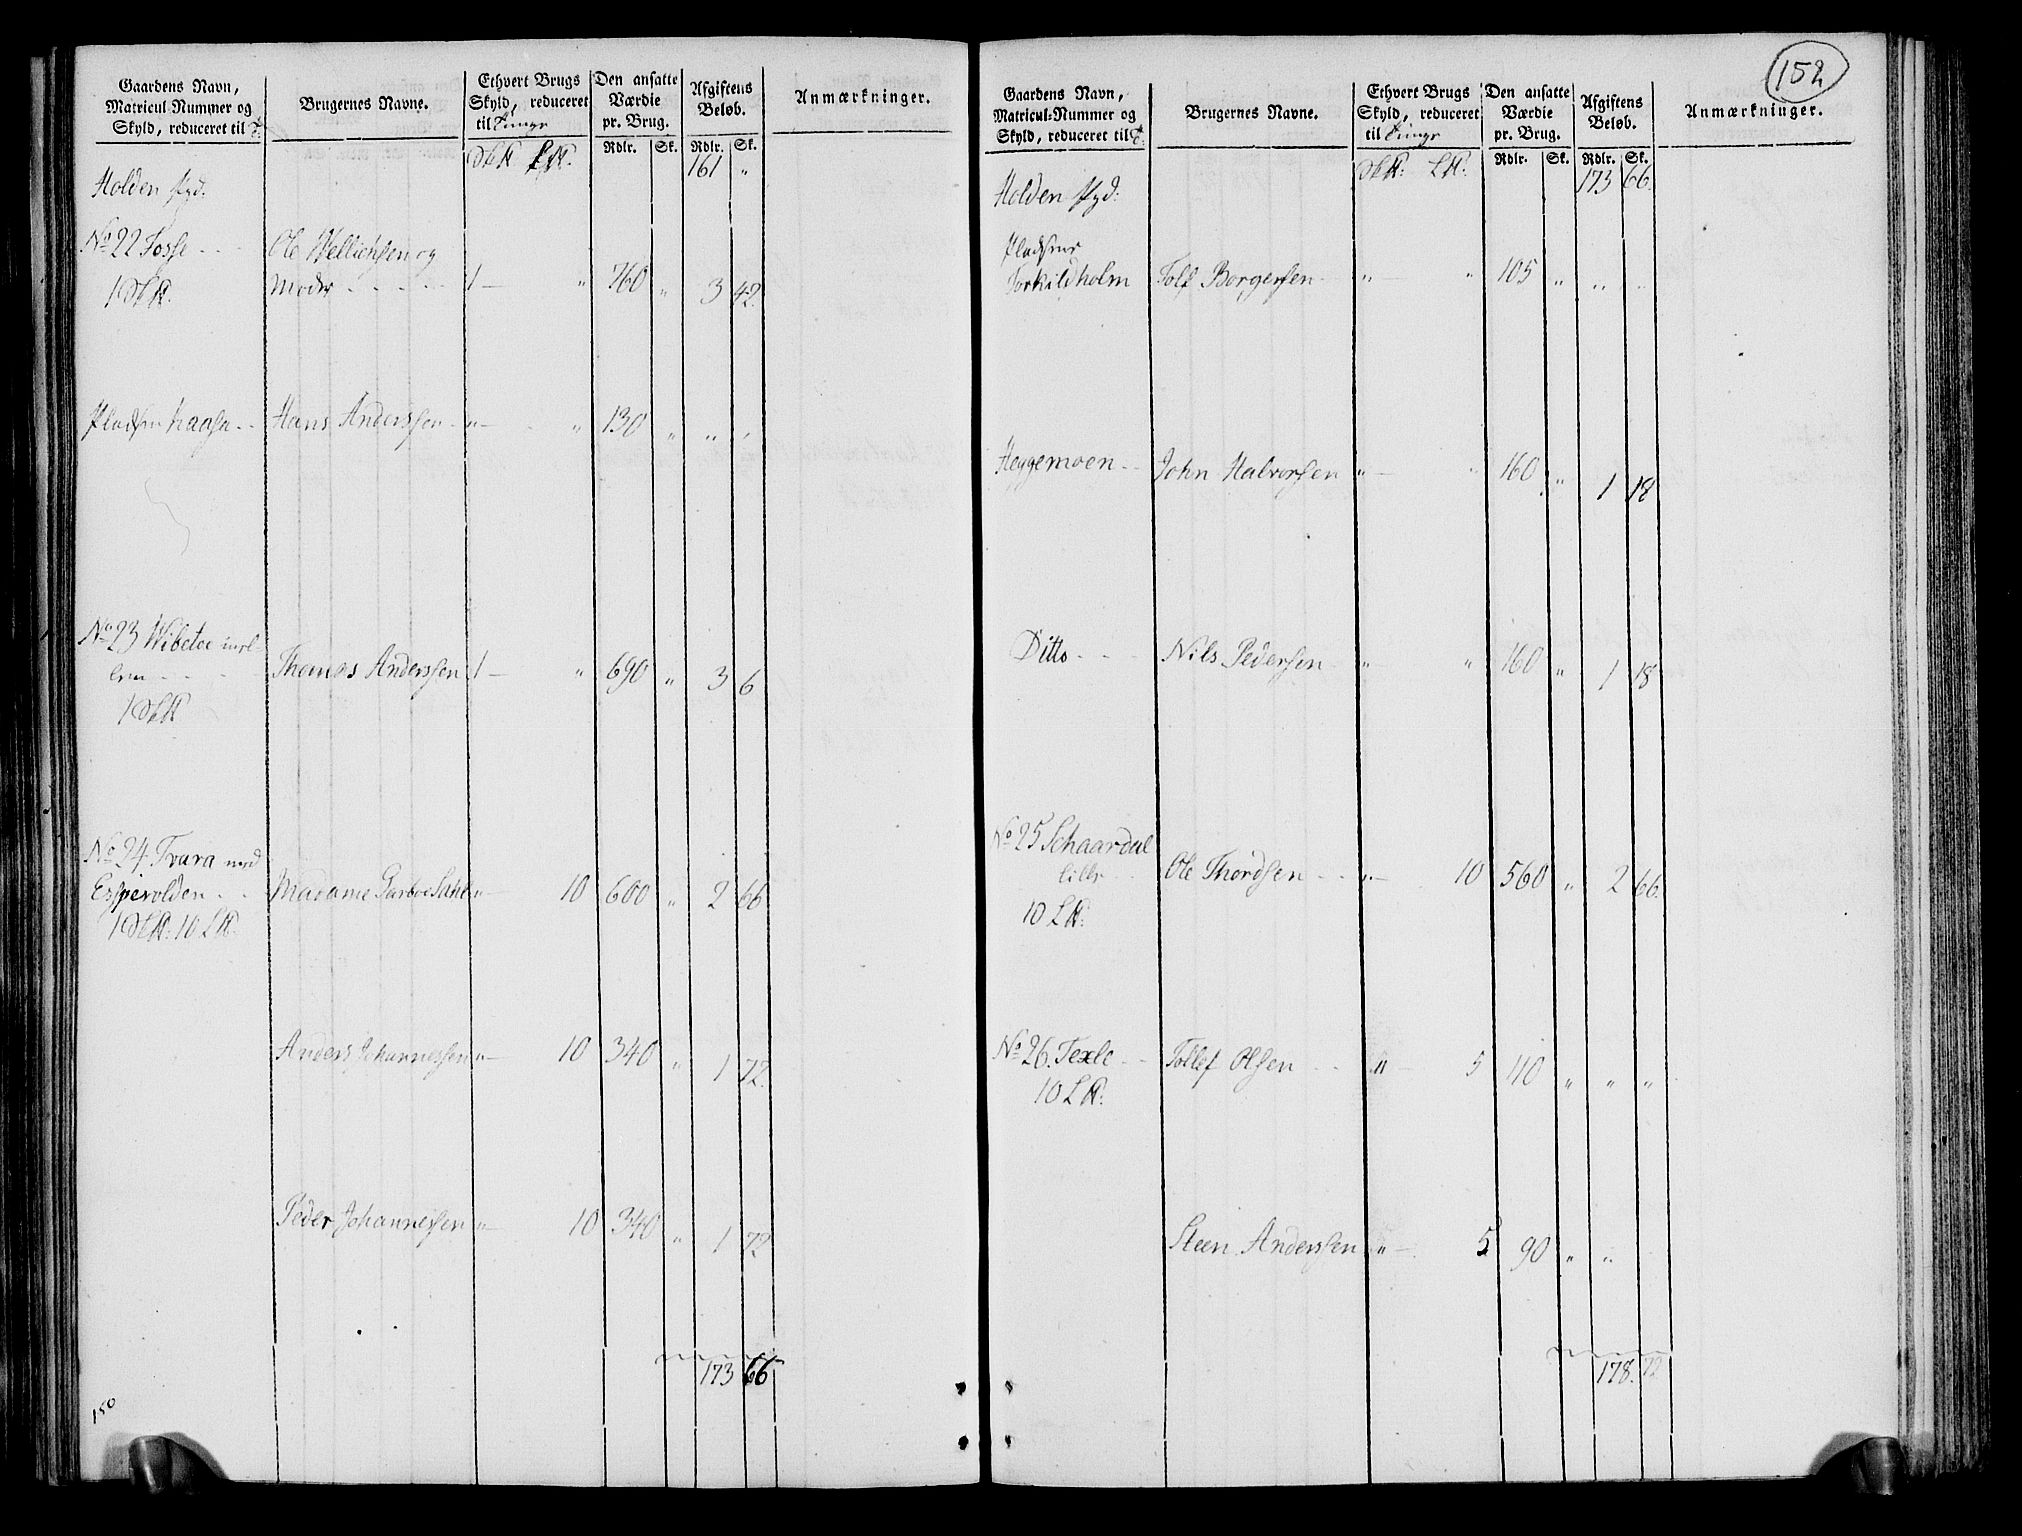 Gaardens Navn, Matricul-Nummer og Skyld, reduceret til
Brugernes Navne.
Ethvert Brugs Skyld, reduceret til Tunge
Den ansatte Værdie pr. Brug.
Afgiftens Beløb.
Anmærkninger.
Rdlr. Sk. Rdlr. Sk.
161 "
Holden
No 22 Fosse - - Ole Wellichsen og
Moder - - - - - 1 - " 760 " 3 42
Pladsen Haasa - - Hans Anderssen - " - " 130 " " "
No 23 Wibetoe
- - - - Thomas Anderssen 1 - " 690 " 3 6
No 24 Tvara med
Esspevolden - - Madame " - 10 600 " 2 66
Anders Johannessen " - 10 340 " 1 72
Peder Johannessen " - 10 340 " 1 72
173 66
150
152
Gaardens Navn, Matricul-Nummer og Skyld, reduceret til
Brugernes Navne.
Ethvert Brugs Skyld, reduceret til Tunge
Den ansatte Værdie pr. Brug.
Afgiftens Beløb.
Anmærkninger.
Rdlr. Sk. Rdlr. Sk.
173 66.
Holden
Torkildholm Tolf Borgersen - " - " 105 " " "
Heggemoen - - John Halvorsen " - " 160 " 1 18
Ditto - - - Nils Pedersen - " - " 160 " 1 18
No 25 Schaardal
lille - - Ole Thordsen - - " - 10 560 " 2 66.
No 26. Texle - - Tollef Olsen - - " - 5 110 " " "
Steen Anderssen " - 5 90 " "
178. 72